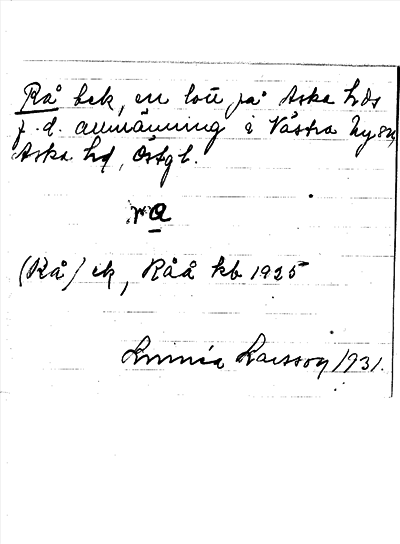 Rå bek, en lott på Aska hds
f.d. allmänning i Västra Ny sn,
Aska hd, Östgl.
rα
(Rå) ek, Råå kb 1925
Linnéa Larsson 1931.